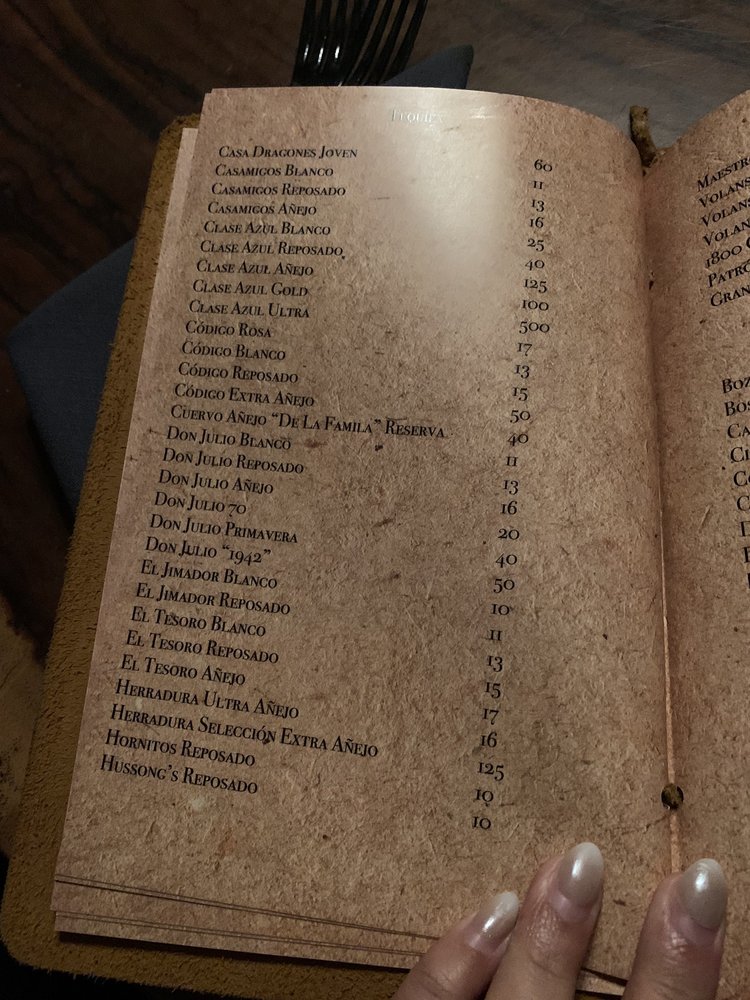 Tequila
Casa Dragones Joven 60
Casamigos Blanco 11
Casamigos Reposado 13
Casamigos Añejo 16
Clase Azul Blanco 25
Clase Azul Reposado 40
Clase Azul Añejo 125
Clase Azul Gold 100
Clase Azul Ultra 500
Código Rosa 17
Código Blanco 13
Código Reposado 15
Código Extra Añejo 50
Cuervo Añejo "De La Famila" Reserva 40
Don Julio Blanco 11
Don Julio Reposado 13
Don Julio Añejo 16
Don Julio 70 20
Don Julio Primavera 40
Don Julio "1942" 50
El Jimador Blanco 10
El Jimador Reposado 11
El Tesoro Blanco 13
El Tesoro Reposado 15
El Tesoro Añejo 17
Herradura Ultra Añejo 16
Herradura Selección Extra Añejo 125
Hornitos Reposado 10
Hussong's Reposado 10
Maestr
Volans
Volans
Volans
1800
Patró
Gran
Boz
Bos
Ca